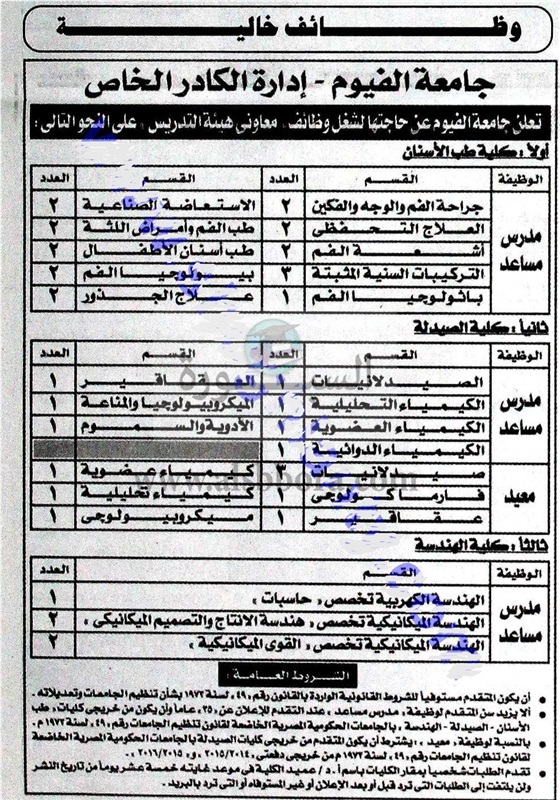 وظائف خالية
جامعة الفيوم - إدارة الكادر الخاص
تعلن جامعة الفيوم عن حاجتها لشغل وظائف « معاونى هيئة التدريس » على النحو التالى :
أولاً : كلية طب الأسنان
الوظيفة القسم العدد القسم العدد
مدرس مساعد
جراحة الفم والوجه والفكين ٢ الاستعاضة الصناعية ٢
العلاج التحفظى ٢ طب الفم وأمراض اللثة ٢
أشعة الفم ٢ طب أسنان الأطفال ٢
التركيبات السنية المثبتة ٣ بيولوجيا الفم ٢
باثولوجيا الفم ١ علاج الجذور ٢
ثانياً : كلية الصيدلة
الوظيفة القسم العدد القسم العدد
مدرس مساعد
الصيدلانيات ١ العقاقير ١
الكيمياء التحليلية ١ الميكروبيولوجيا والمناعة ١
الكيمياء العضوية ١ الأدوية والسموم ١
الكيمياء الدوائية ١
معيد
صيدلانيات ٣ كيمياء عضوية ١
فارماكولوجى ١ كيمياء تحليلية ١
عقاقير ١ ميكروبيولوجى ١
السبورة
www.alsbbora.com
ثالثاً : كلية الهندسة
الوظيفة القسم العدد
مدرس مساعد
الهندسة الكهربية تخصص « حاسبات » ١
الهندسة الميكانيكية تخصص « هندسة الانتاج والتصميم الميكانيكى » ٢
الهندسة الميكانيكية تخصص « القوى الميكانيكية » ٢
الشروط العامة :
أن يكون المتقدم مستوفياً للشروط القانونية الواردة بالقانون رقم ٤٩ لسنة ١٩٧٢ بشأن تنظيم الجامعات وتعديلاته .
ألا يزيد سن المتقدم لوظيفة « مدرس مساعد » عند التقدم للإعلان عن ٣٥ عاماً وأن يكون من خريجى كليات « طب
الأسنان - الصيدلة - الهندسة » بالجامعات الحكومية المصرية الخاضعة لقانون تنظيم الجامعات رقم ٤٩ لسنة ١٩٧٢ م .
بالنسبة لوظيفة « معيد » يشترط أن يكون المتقدم من خريجى كليات الصيدلة بالجامعات الحكومية المصرية الخاضعة
لقانون تنظيم الجامعات رقم ٤٩ لسنة ١٩٧٢ م من خريجى دفعتى ٢٠١٥/٢٠١٤ ، ٢٠١٦/٢٠١٥ م .
تقدم الطلبات شخصياً بمقار الكليات باسم أ . د / عميد الكلية فى موعد غايته خمسة عشر يوماً من تاريخ النشر
ولن يلتفت إلى الطلبات التى ترد قبل أو بعد الإعلان أو غير المستوفاه أو التى ترد بالبريد .